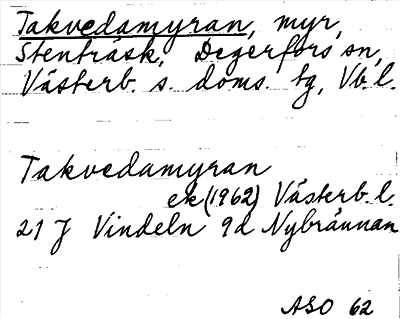 Takvedamyran, myr,
Stenträsk, Degerfors sn,
Västerb. s. doms. tg, Vb. l.
Takvedamyran
ek (1962) Västerb. l.
21 J Vindeln 9d Nybrännan
ASO 62